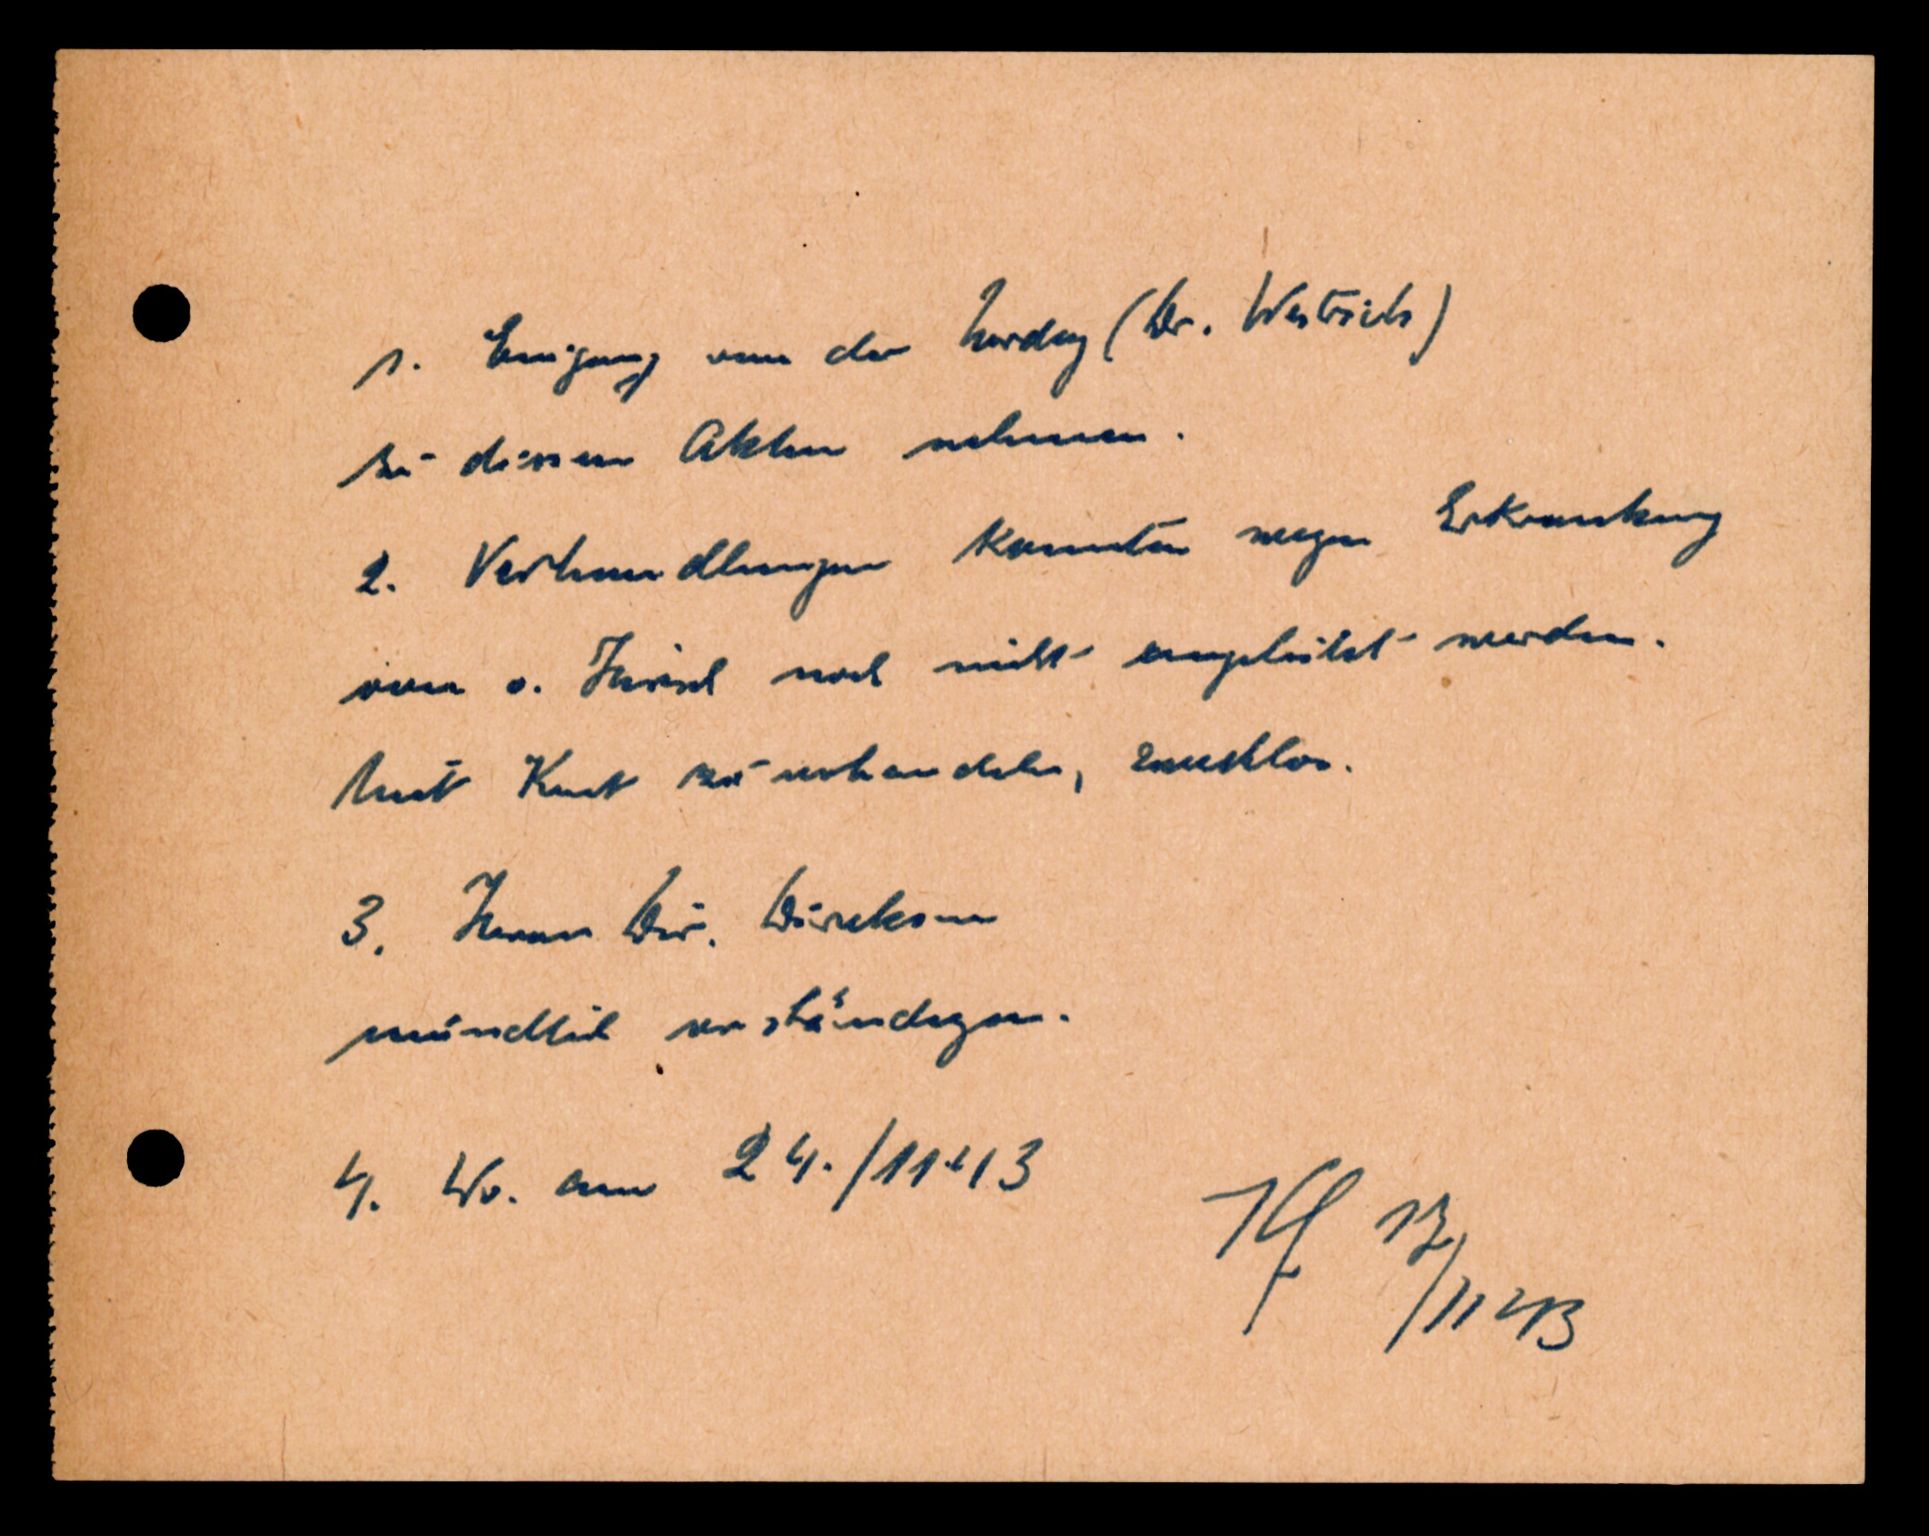 1. Einigung von der Norday (Dr. Westrick)
zu diesen Akten nehmen.
2. Verhandlungen konnten wegen Erkrankung
von v. noch nicht eingeleitet werden.
Mit Kurt zu verhandeln, zwecklos.
3. Herrn Dir. Dircksen
mündlich verständigen.
4. Wv. am 24./11.43
/11 43